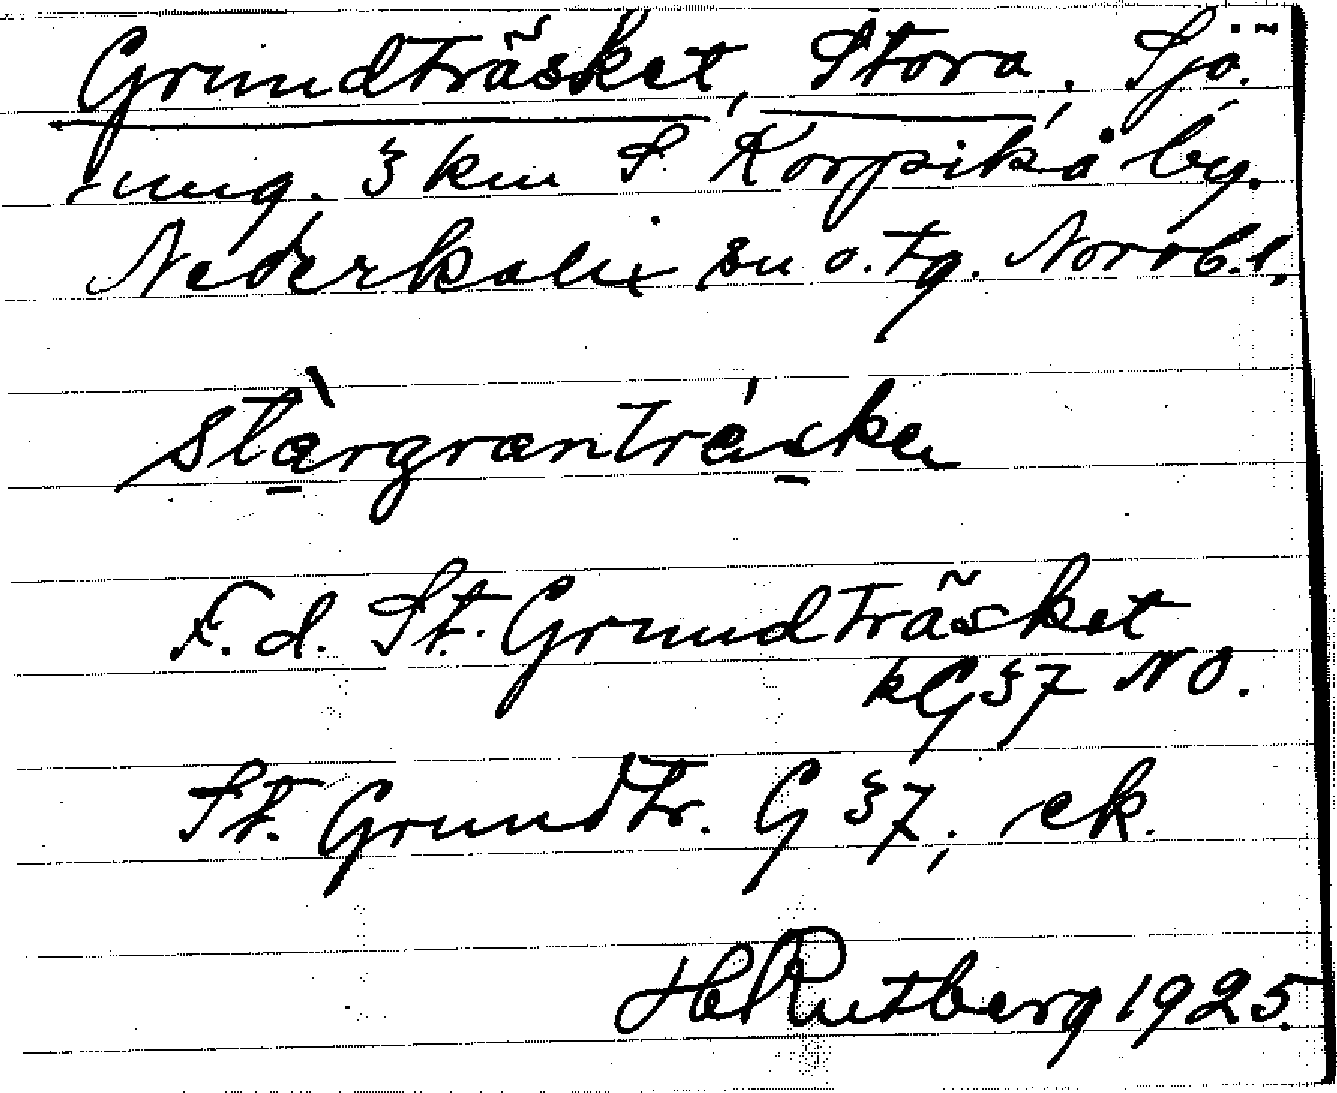 Grundträsket, Stora. Sjö
ung. 3 km S. Korpikå by.
Nederkalix sn o. tg. Norrb. l.
stàrgranträ́ske
F. d. St. Grundträsket
kG 37 NO.
St. Grundtr. G 37, ek.
H Rutberg 1925.